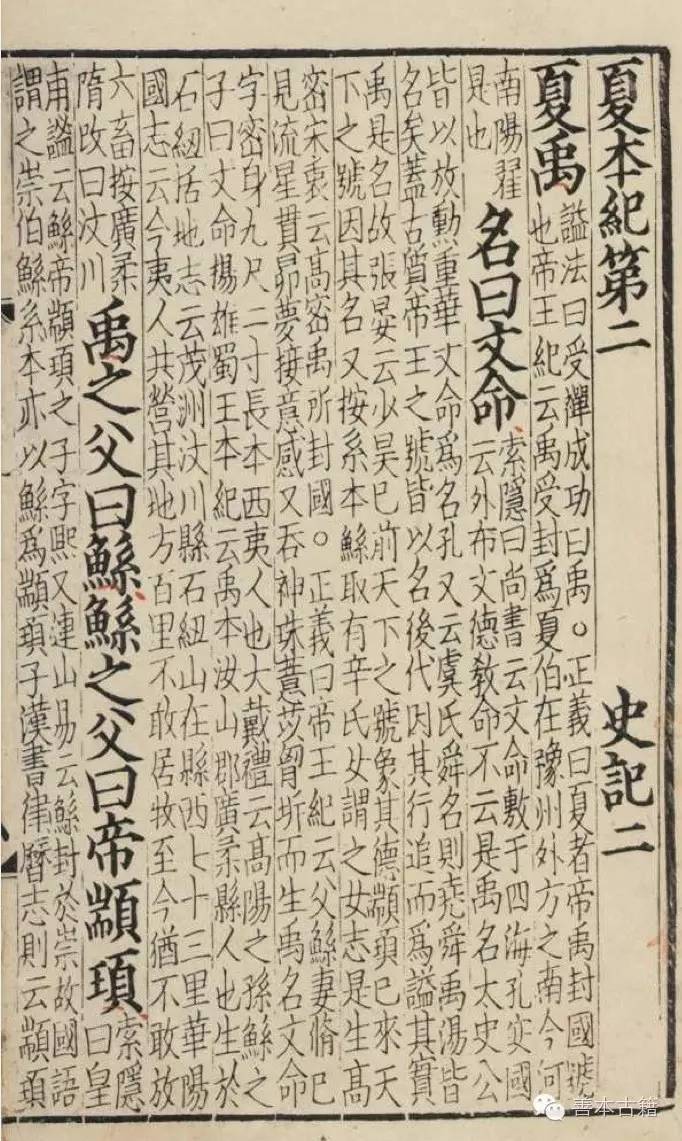 夏本紀第二　史記二
夏禹
謚法曰受禪成功曰禹。正義曰夏者帝禹封國號
也帝王紀云禹受封爲夏伯在豫州外方之南今河
南陽翟
是也
名曰文命
索隱曰尚書云文命敷于四海孔安國
云外布文德敎命不云是禹名太史公
皆以放勲重華文命爲名孔又云虞氏舜名則堯舜禹湯皆
名矣蓋古質帝王之號皆以名後代因其行追而爲謚其實
禹是名故張晏云少昊已前天下之號象其德顓頊已來天
下之號因其名又按系本鯀取有辛氏女謂之女志是生高
密宋衷云高密禹所封國。正義曰帝王紀云父鯀妻脩已
見流星貫昴夢接意感又吞神珠薏苡胷坼而生禹名文命
字密身九尺二寸長本西夷人也大戴禮云高陽之孫鯀之
子曰文命揚雄蜀王本紀云禹本汝山郡廣柔縣人也生於
石紐括地志云茂洲汶川縣石紐山在縣西七十三里華陽
國志云今夷人共營其地方百里不敢居牧至今猶不敢放
六畜按廣柔
隋改曰汶川
禹之父曰鯀鯀之父曰帝顓頊
索隱
曰皇
甫謐云鯀帝顓頊之子字熙又連山易云鯀封於崇故國語
謂之崇伯鯀系本亦以鯀爲顓頊子漢書律曆志則云顓頊
善本古籍